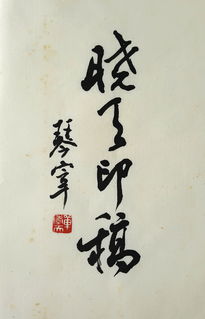 晓天印稿
琴宰